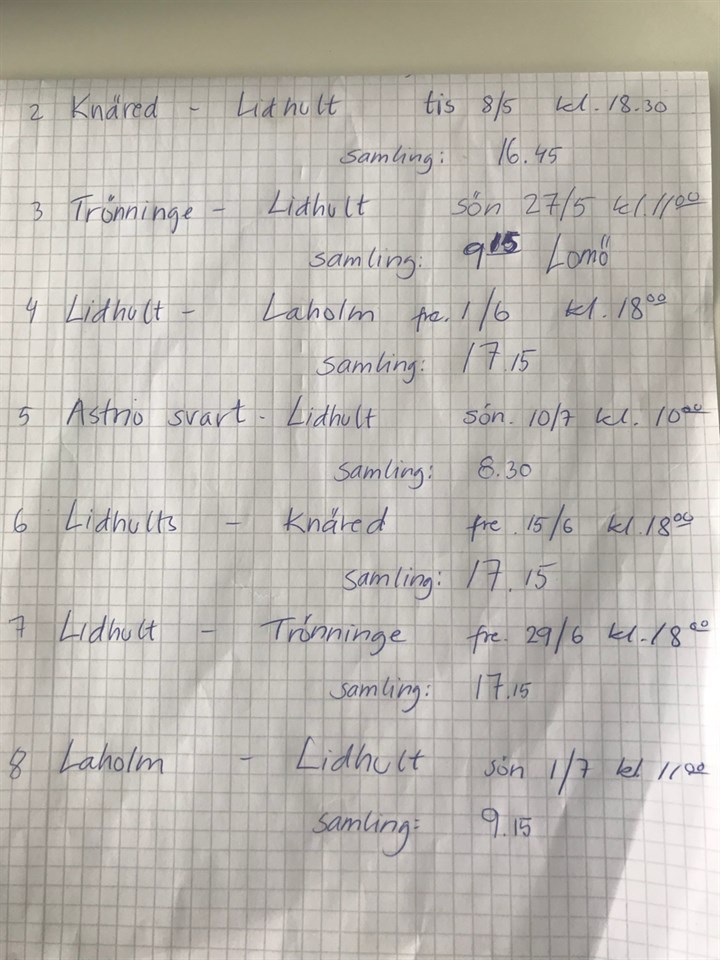 2 Knäred - Lidhult tis 8/5 kl. 18.30
samling: 16.45
3 Trönninge - Lidhult sön 27/5 kl. 11.00
samling: 9 15 Lomö
4 Lidhult - Laholm fre. 1/6 kl. 18 00
samling: 17.15
5 Astrio svart - Lidhult sön. 10/7 kl. 10 00
samling: 8.30
6 Lidhults - Knäred fre. 15/6 kl. 18 00
samling: 17.15
7 Lidhult - Trönninge fre. 29/6 kl. 18 00
samling: 17.15
8 Laholm - Lidhult sön 1/7 kl 11 00
samling: 9.15